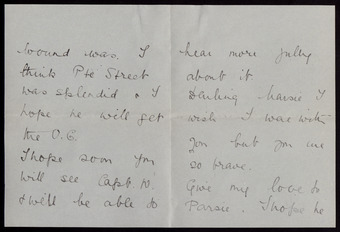 wound was. I
think Pte Street
was splendid & I
hope he will get
the V.C.
I hope soon you
will see Capt. W.
& will be able to
hear more fully
about it.
Darling Maisie I
wish I was with
you but you are
so brave.
Give my love to
Parsie. I hope he